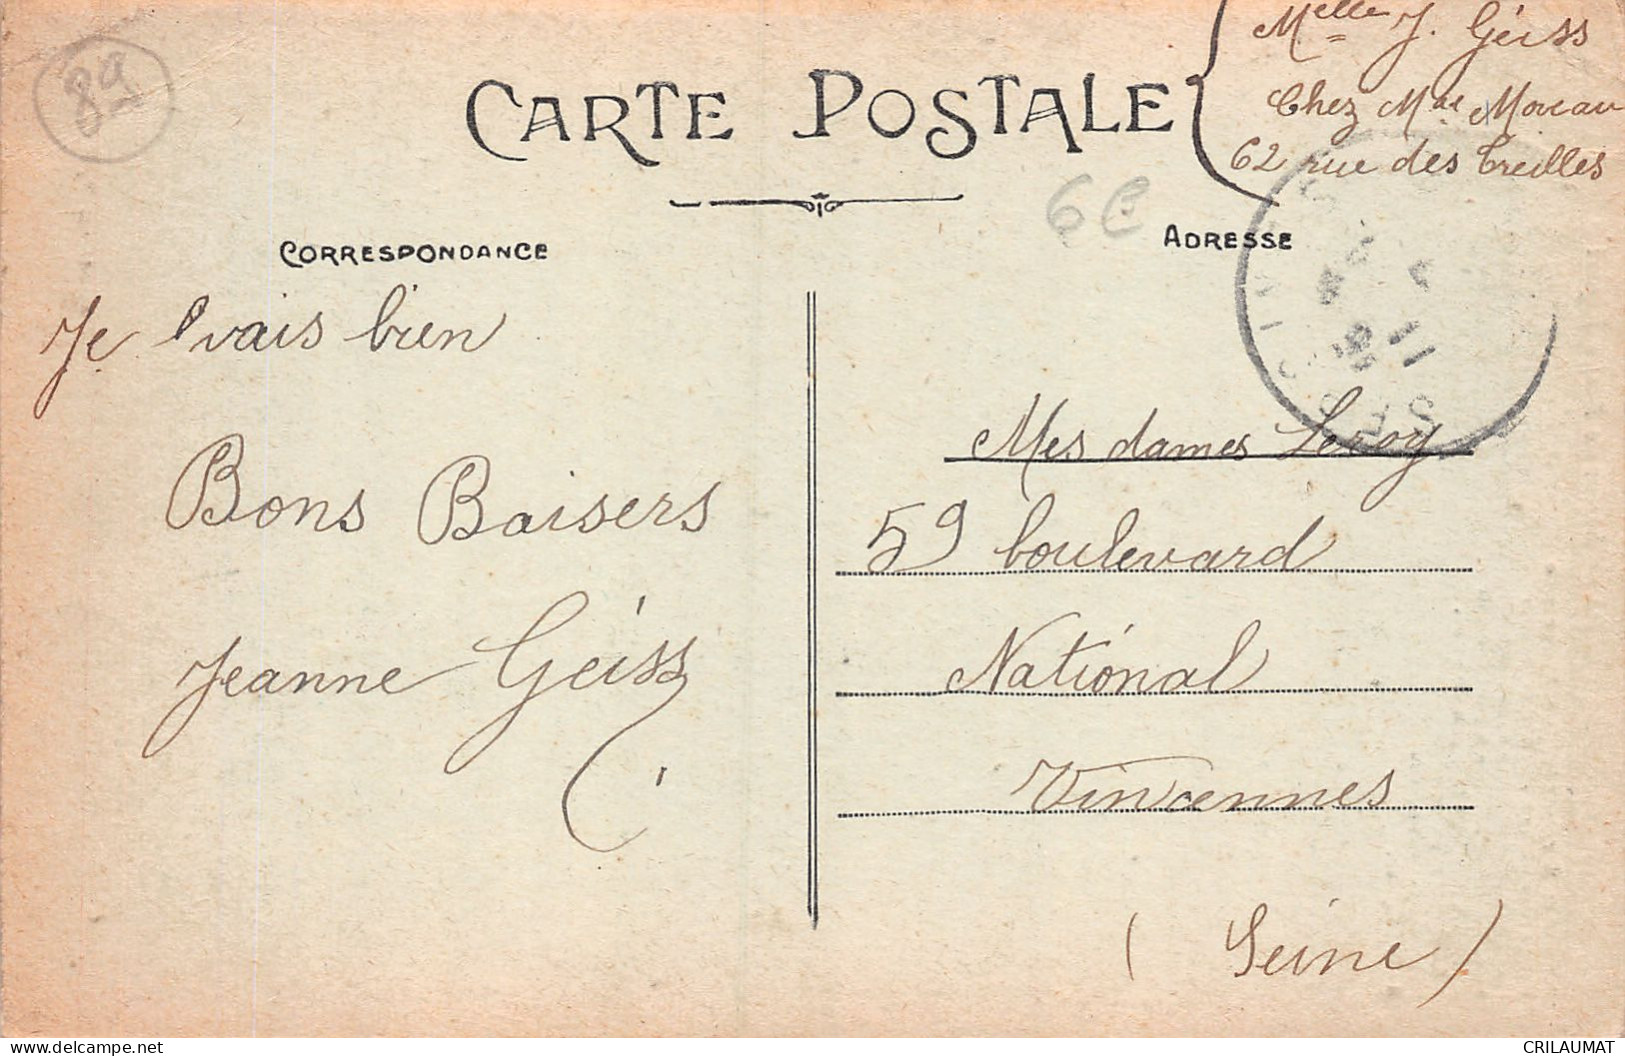 Melle J. Géiss
Chez Mme Moreau
62 rue des Treilles
89
CARTE POSTALE
6€
CORRESPONDANCE
ADRESSE
Je vais bien
Bons Baisers
Jeanne Géiss
Mes dames Leroy
59 boulevard
National
Vincennes
(Seine)
delcampe.net
CRILAUMAT